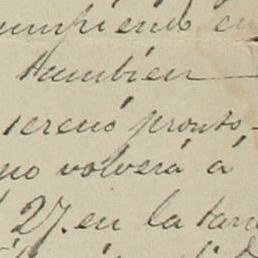 umpliendo en
tambien
sereno pronto-
no volverá á
27. en la tard